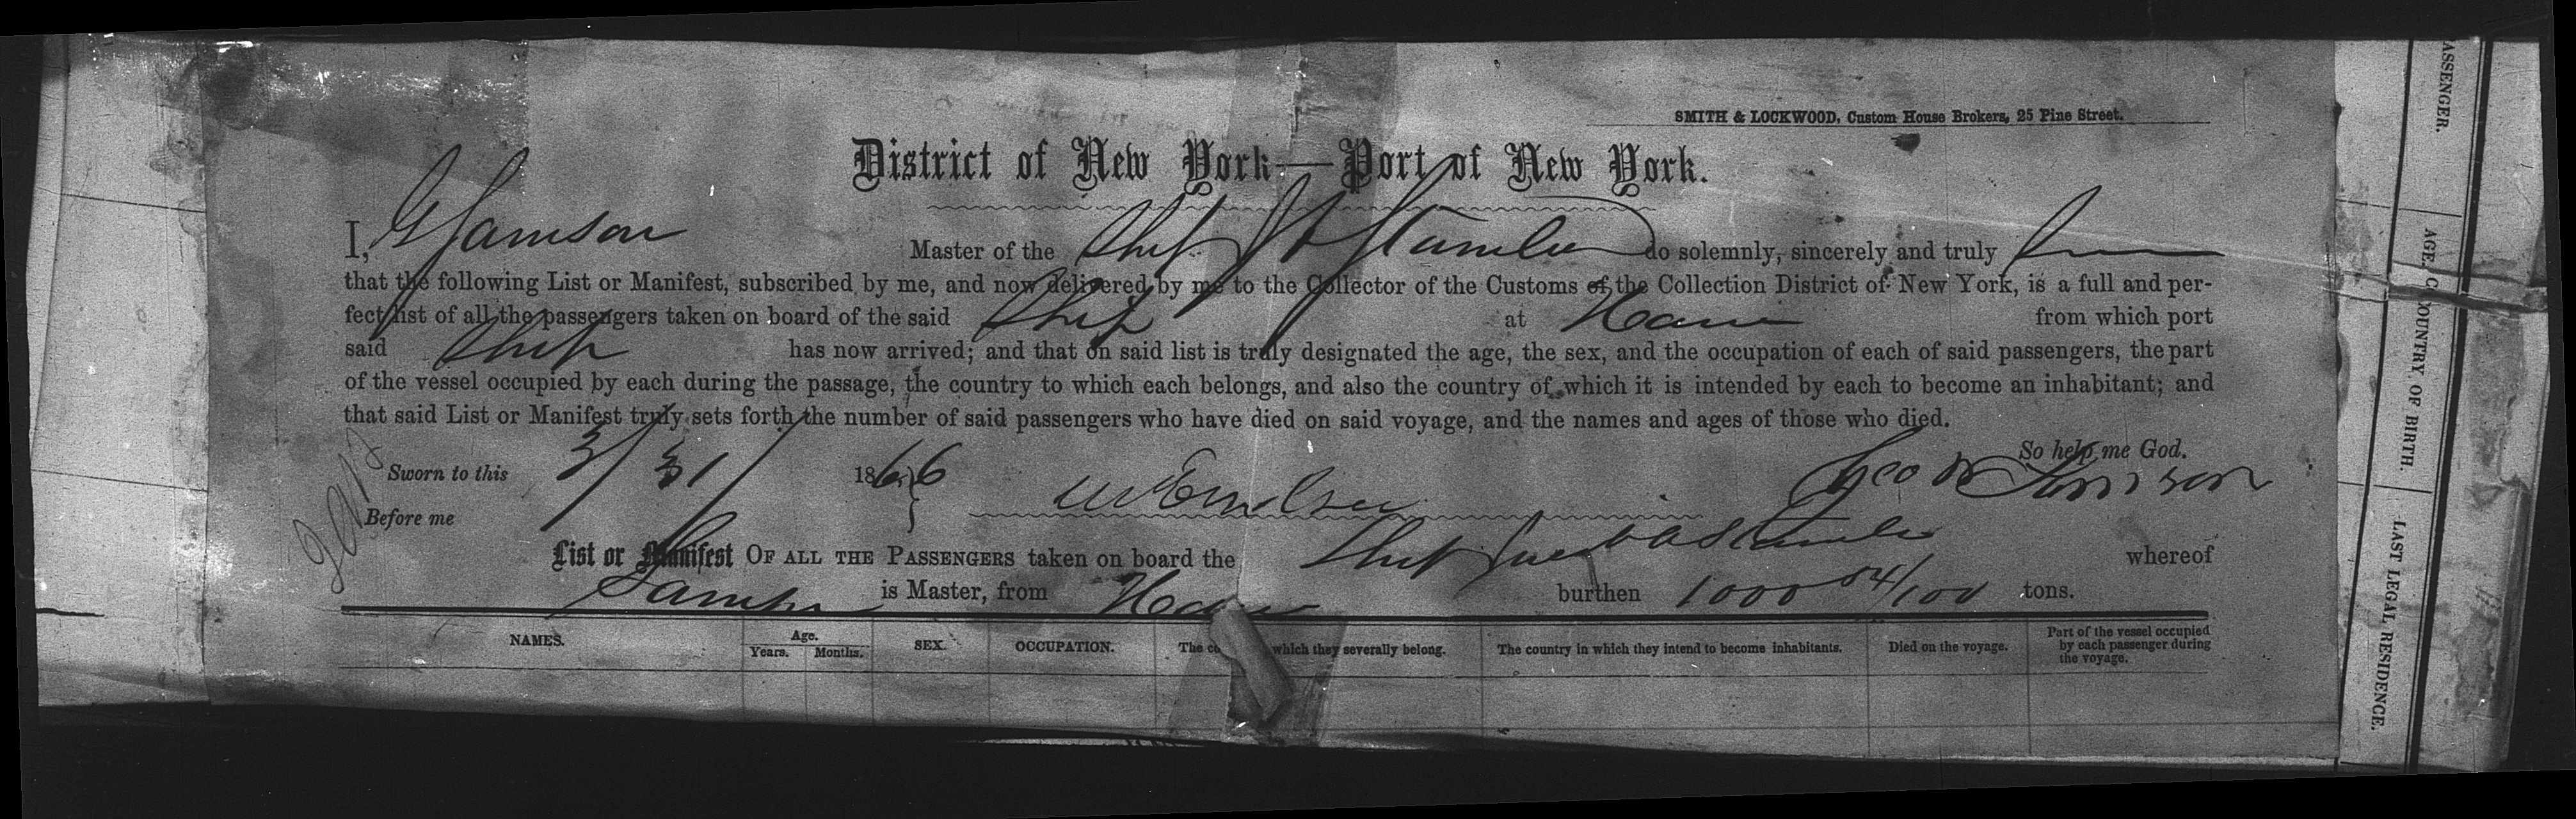 SMITH & LOCKWOOD, Custom House Brokers, 25 Pine Street.
District of New York—Port of New York.
I, G Jamison Master of the Ship J A Stamler do solemnly, sincerely and truly
that the following List or Manifest, subscribed by me, and now delivered by me to the Collector of the Customs of the Collection District of New York, is a full and per-
fect list of all the passengers taken on board of the said Ship at Havre from which port
said Ship has now arrived; and that on said list is truly designated the age, the sex, and the occupation of each of said passengers, the part
of the vessel occupied by each during the passage, the country to which each belongs, and also the country of which it is intended by each to become an inhabitant; and
that said List or Manifest truly sets forth the number of said passengers who have died on said voyage, and the names and ages of those who died.
So help me God.
Sworn to this 3/31/ 1866
Before me
List or Manifest OF ALL THE PASSENGERS taken on board the Ship Jacob A Stamler whereof
is Master, from Havre burthen 1000 54/100 tons.
NAMES. Age. Years. Months. SEX. OCCUPATION. The which they severally belong. The country in which they intend to become inhabitants. Died on the voyage. Part of the vessel occupied by each passenger during the voyage.
PASSENGER.
AGE. COUNTRY OF BIRTH.
LAST LEGAL RESIDENCE.